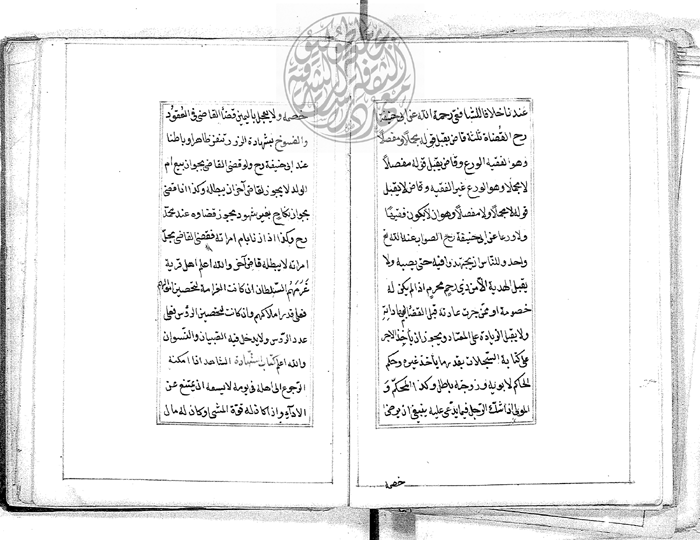 عندنا خلافا للشافعي رحمه الله عن ابي حنيفة
رح القضاة ثلثة قاض يقبل قوله مجملا ومفصلا
وهو الفقيه الورع وقاض يقبل قوله مفصلا
لا مجملا وهو الورع غير الفقيه وقاض لا يقبل
قوله لا مجملا ولا مفصلا وهو ان لا يكون فقيها
ولا ورعا عن ابي حنيفة رح الصواب عند الله تع
واحد وللناس ان يجتهدوا فيه حتى يصيبه ولا
يقبل الهدية الا من ذي رحم محرم اذا لم يكن له
خصومة او ممن جرت عادته قبل القضا
ولا يقبل الزيادة على المعتاد ويجوز ان ياخذ الاجر
على كتابة السجلات بقدر ما ياخذ غيره وحكم
الحاكم لابويه وزوجته باطل وكذا المحكم و
المولى اذا شك الرجل فيما يدعى عليه ينبغي ان يرضى
خصمه
خصمه ولا يعجل باليمين قضا القاضي في العقود
والفسوخ بشهادة الزور تنفذ ظاهرا وباطنا
عند ابي حنيفة رح ولو قضى القاضي بجواز بيع ام
الولد لا يجوز لقاضي آخر ان يبطله وكذا اذا قضى
بجواز نكاح بغير شهود يجوز قضاوه عند محمد
رح وكذا اذا زنا بام امراته فقضى القاضي بحل
امراته لا يبطله قاضي آخر والله اعلم اهل قرية
غرمهم السلطان ان كانت الغرامة لتحصين املاكهم
فعلى قدر املاكهم وان كانت لتحصين الرؤس فعلى
عدد الرؤس ولا يدخل فيه الصبيان والنسوان
والله اعلم كتاب الشهادة الشاهد اذا امكنه
الرجوع الى اهله في يومه لا يسعه ان يمتنع عن
الاداء واذا كان له قوة المشي او كان له مال